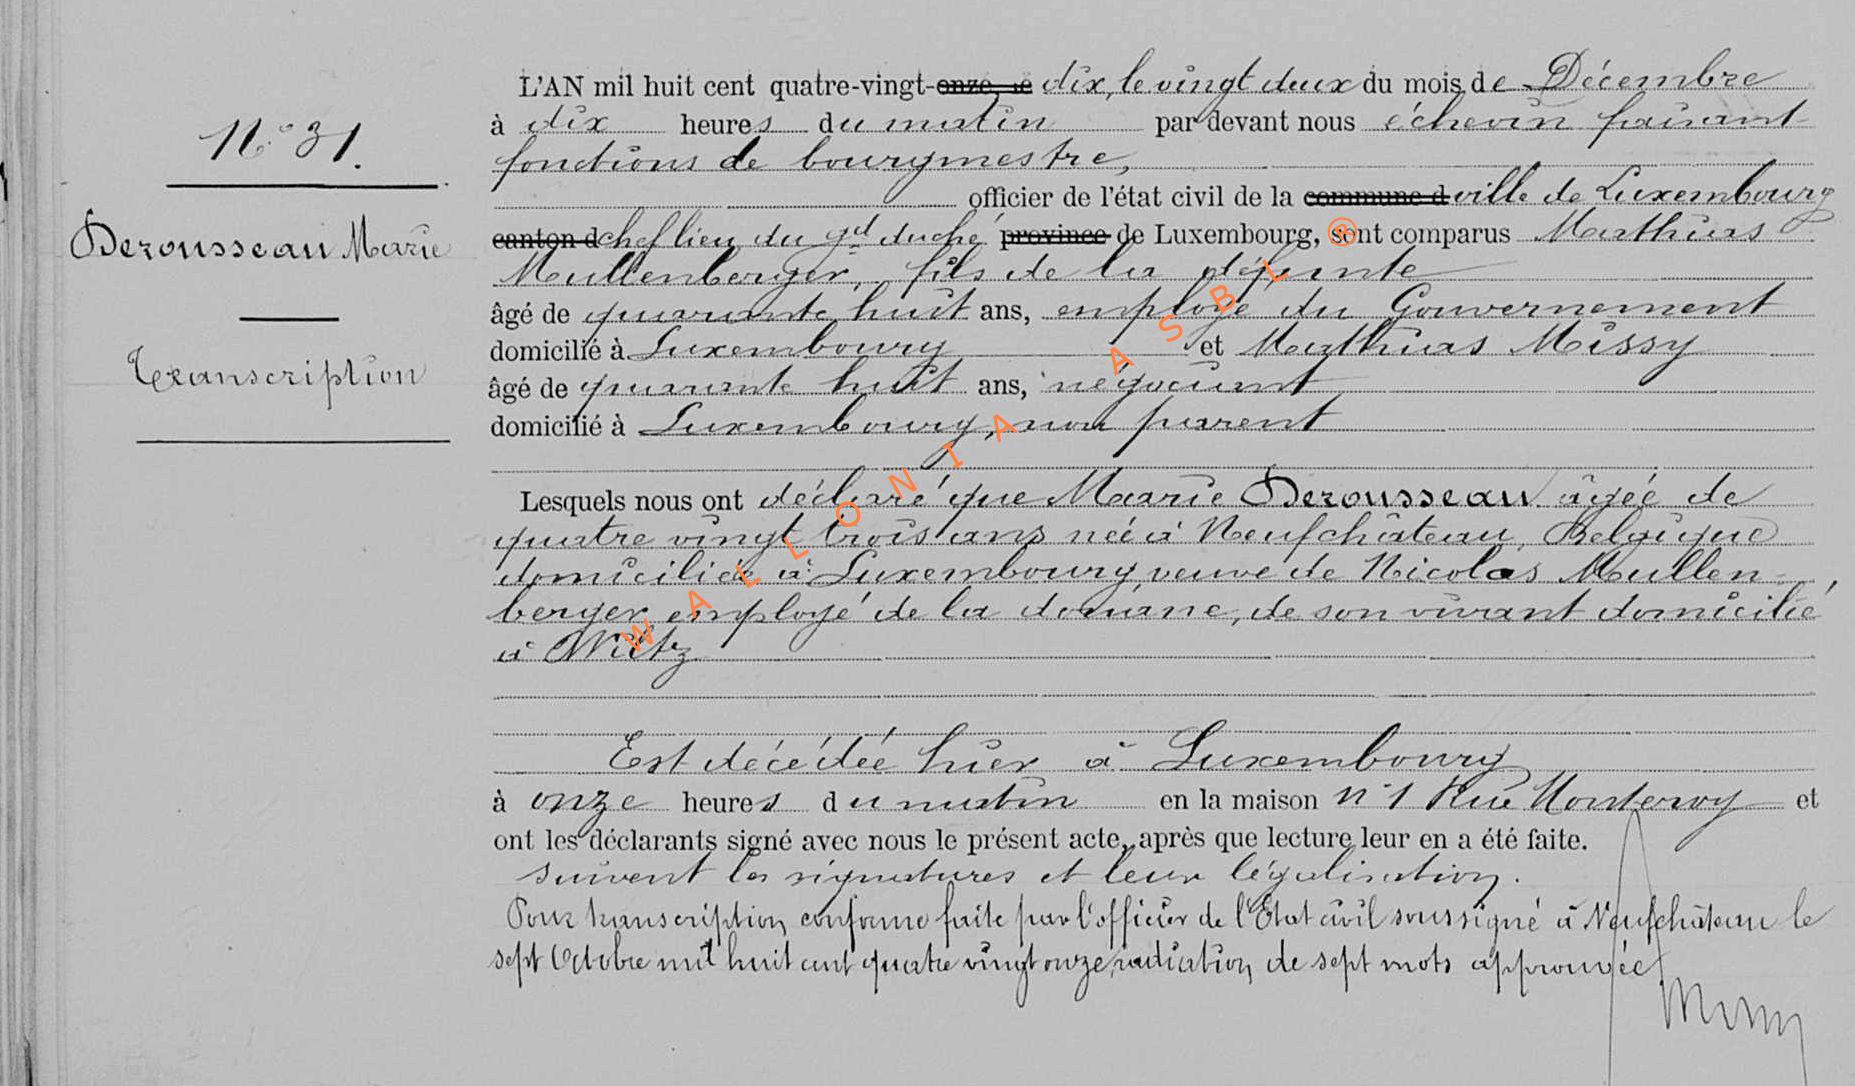 N° 31.
Derousseau Marie
Transcription
L'AN mil huit cent quatre-vingt-onze, le dix, le vingt deux du mois de Décembre
à dix heures du matin par devant nous échevin faisant
fonctions de bourgmestre,
officier de l'état civil de la commune d ville de Luxembourg
canton d chef lieu du gd duché province de Luxembourg, sont comparus Mathias
Mullenberger, fils de la défunte
âgé de quarante huit ans, employé du Gouvernement
domicilié à Luxembourg et Mathias Missy
âgé de quarante huit ans, négociant
domicilié à Luxembourg, non parent
Lesquels nous ont déclaré que Marie Derousseau âgée de
quatre vingt trois ans née à Neufchâteau, Belgique
domiciliée à Luxembourg, veuve de Nicolas Mullen-
berger employé de la douane, de son vivant domicilié
à Wiltz
Est décédée hier à Luxembourg
à onze heures du matin en la maison n° 1 Rue Monterey et
ont les déclarants signé avec nous le présent acte, après que lecture leur en a été faite.
suivent les signatures et leur légalisation.
Pour transcription conforme faite par l'officier de l'Etat civil soussigné à Neufchâteau le
sept Octobre mil huit cent quatre vingt onze, radiation de sept mots approuvée
WALLONIA ASBL ®